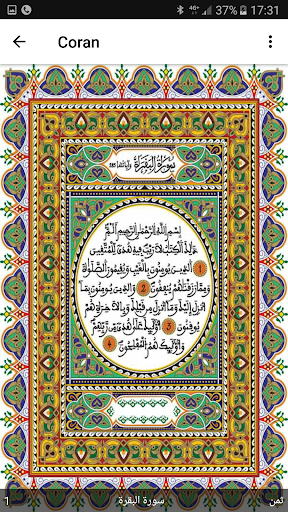 4G 37% 17:31
Coran
سورة البقرة وآياتها
بسم الله الرحمن الرحيم ألم
ذلك الكتاب لا ريب فيه هدى للمتقين
1 الذين يومنون بالغيب ويقيمون الصلوة
ومما رزقنهم ينفقون 2 والذين يومنون بما
أنزل إليك وما أنزل من قبلك وبالاخرة هم
يوقنون 3 أولئك على هدى من ربهم
وأولئك هم المفلحون 4
ثمن سورة البقرة 1